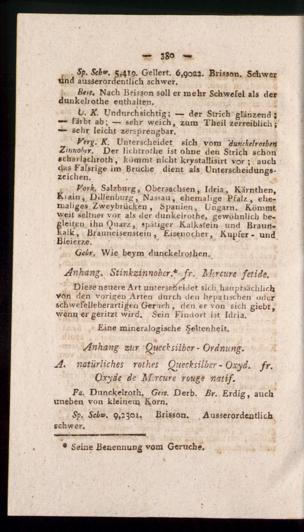 — 380 —
Sp. Schw. 5,419. Gellert. 6,9022. Brisson. Schwer
und ausserordentlich schwer.
Best. Nach Brisson soll er mehr Schwefel als der
dunkelrothe enthalten.
U. K. Undurchsichtig; — der Strich glänzend;
— färbt ab; — sehr weich, zum Theil zerreiblich;
— sehr leicht zersprengbar.
Verg. K. Unterscheidet sich vom dunkelrothen
Zinnober. Der lichtrothe ist ohne den Strich schon
scharlachroth, kömmt nicht krystallisirt vor; auch
das Fasrige im Bruche dient als Unterscheidungs-
zeichen.
Vork. Salzburg, Obersachsen, Idria, Kärnthen,
Krain, Dillenburg, Nassau, ehemalige Pfalz, ehe-
maliges Zweybrücken, Spanien, Ungarn. Kömmt
weit seltner vor als der dunkelrothe, gewöhnlich be-
gleiten ihn Quarz, spätiger Kalkstein und Braun-
kalk, Brauneisenstein, Eisenocher, Kupfer- und
Bleierze.
Gebr. Wie beym dunkelrothen.
Anhang. Stinkzinnober.* fr. Mercure fetide.
Diese neuere Art unterscheidet sich hauptsächlich
von den vorigen Arten durch den hepatischen oder
schwefelleberartigen Geruch, den er von sich giebt,
wenn er geritzt wird. Sein Findort ist Idria.
Eine mineralogische Seltenheit.
Anhang zur Quecksilber-Ordnung.
A. natürliches rothes Quecksilber-Oxyd. fr.
Oxyde de Mercure rouge natif.
Fa. Dunckelroth, Gest. Derb. Br. Erdig, auch
uneben von kleinem Korn.
Sp. Schw. 9,2301. Brisson. Ausserordentlich
schwer.
* Seine Benennung vom Geruche.